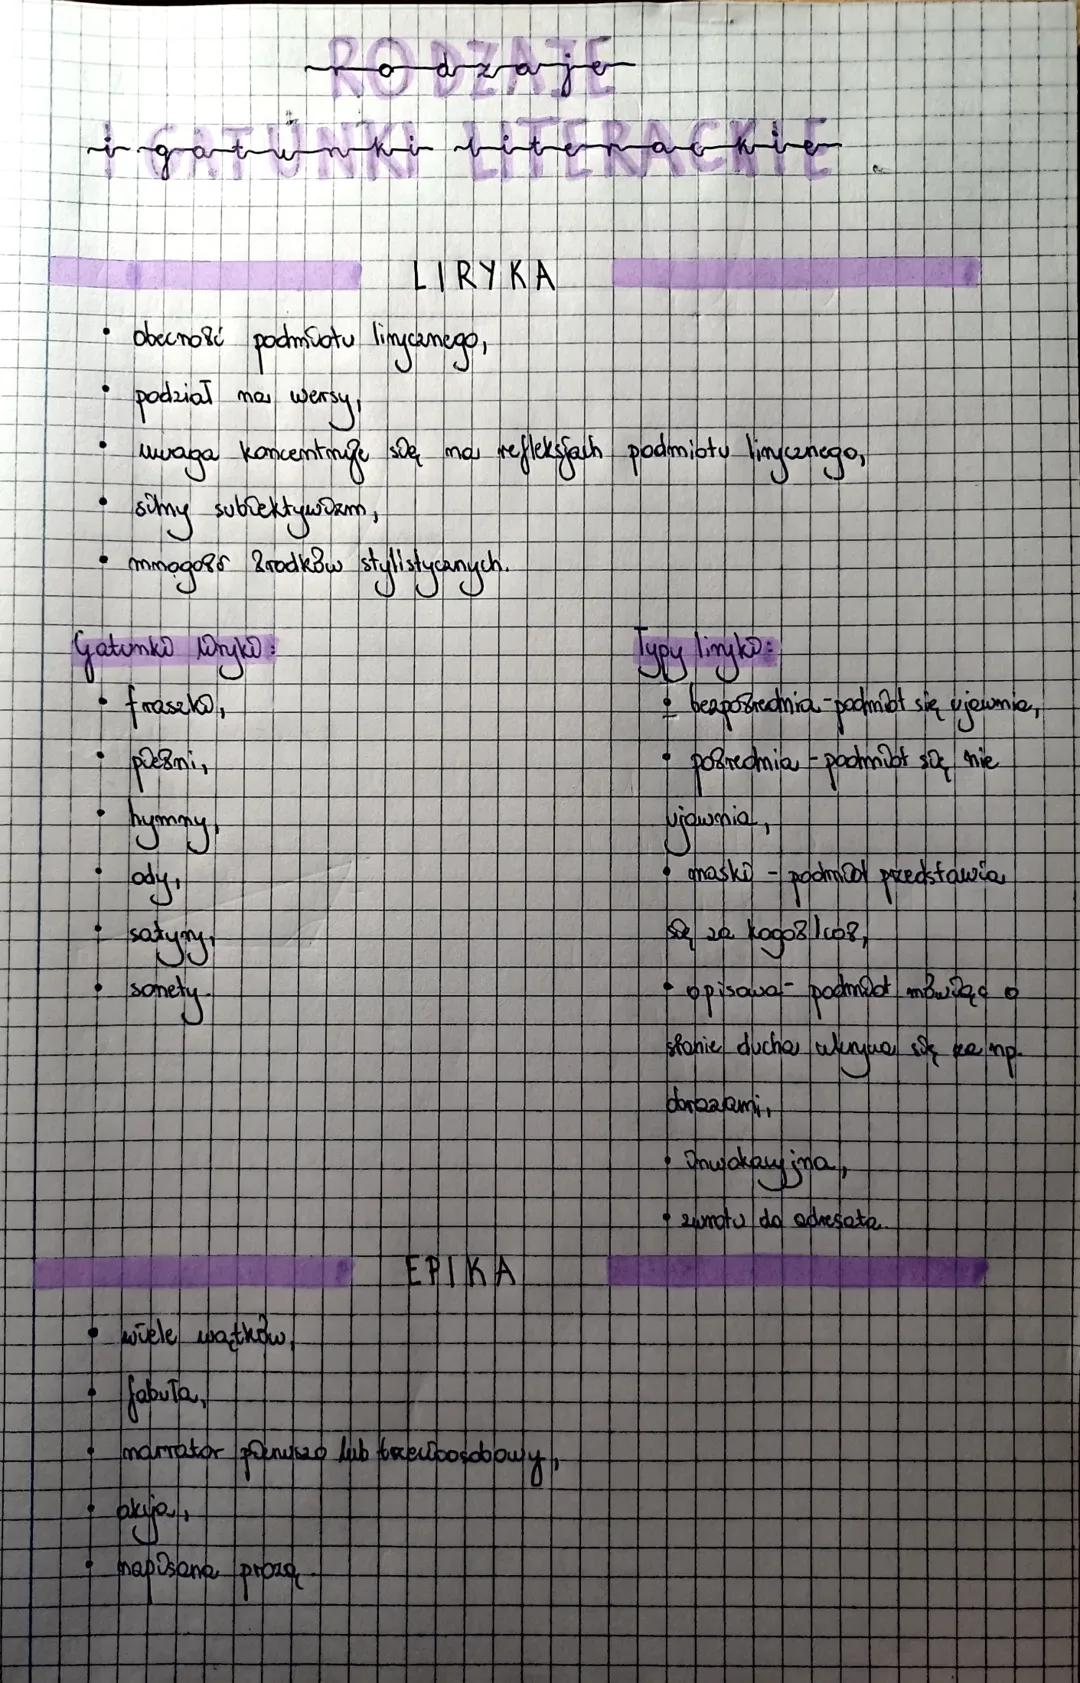 RODZAJE
rodzaje
i GATUNKI LITERACKIE
i gatunki literackie
LIRYKA
• obecność podmiotu lirycznego,
• podział na wersy,
• uwaga koncentruje się na refleksjach podmiotu lirycznego,
• silny subiektywizm,
• mnogość środków stylistycznych.
Gatunki liryki:
• fraszki,
• pieśni,
• hymny,
• ody,
• satyry,
• sonety.
Typy liryki:
• bezpośrednia - podmiot się ujawnia,
• pośrednia - podmiot się nie
ujawnia,
• maski - podmiot przedstawia
się za kogoś/coś,
• opisowa - podmiot mówiąc o
stanie ducha ukrywa się za np.
obrazami,
• inwokacyjna,
• zwrotu do adresata.
EPIKA
• wiele wątków,
• fabuła,
• narrator pierwszo lub trzecioosobowy,
• akcja,
• napisana prozą.